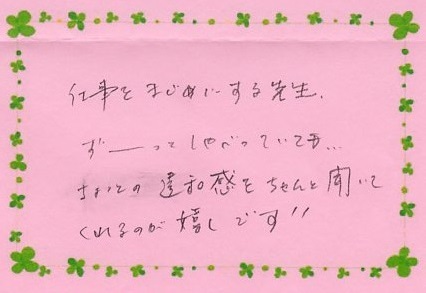 仕事をまじめにする先生、
ず――っとしゃべっていても…
ちょっとの違和感をちゃんと聞いて
くれるのが嬉しいです!!